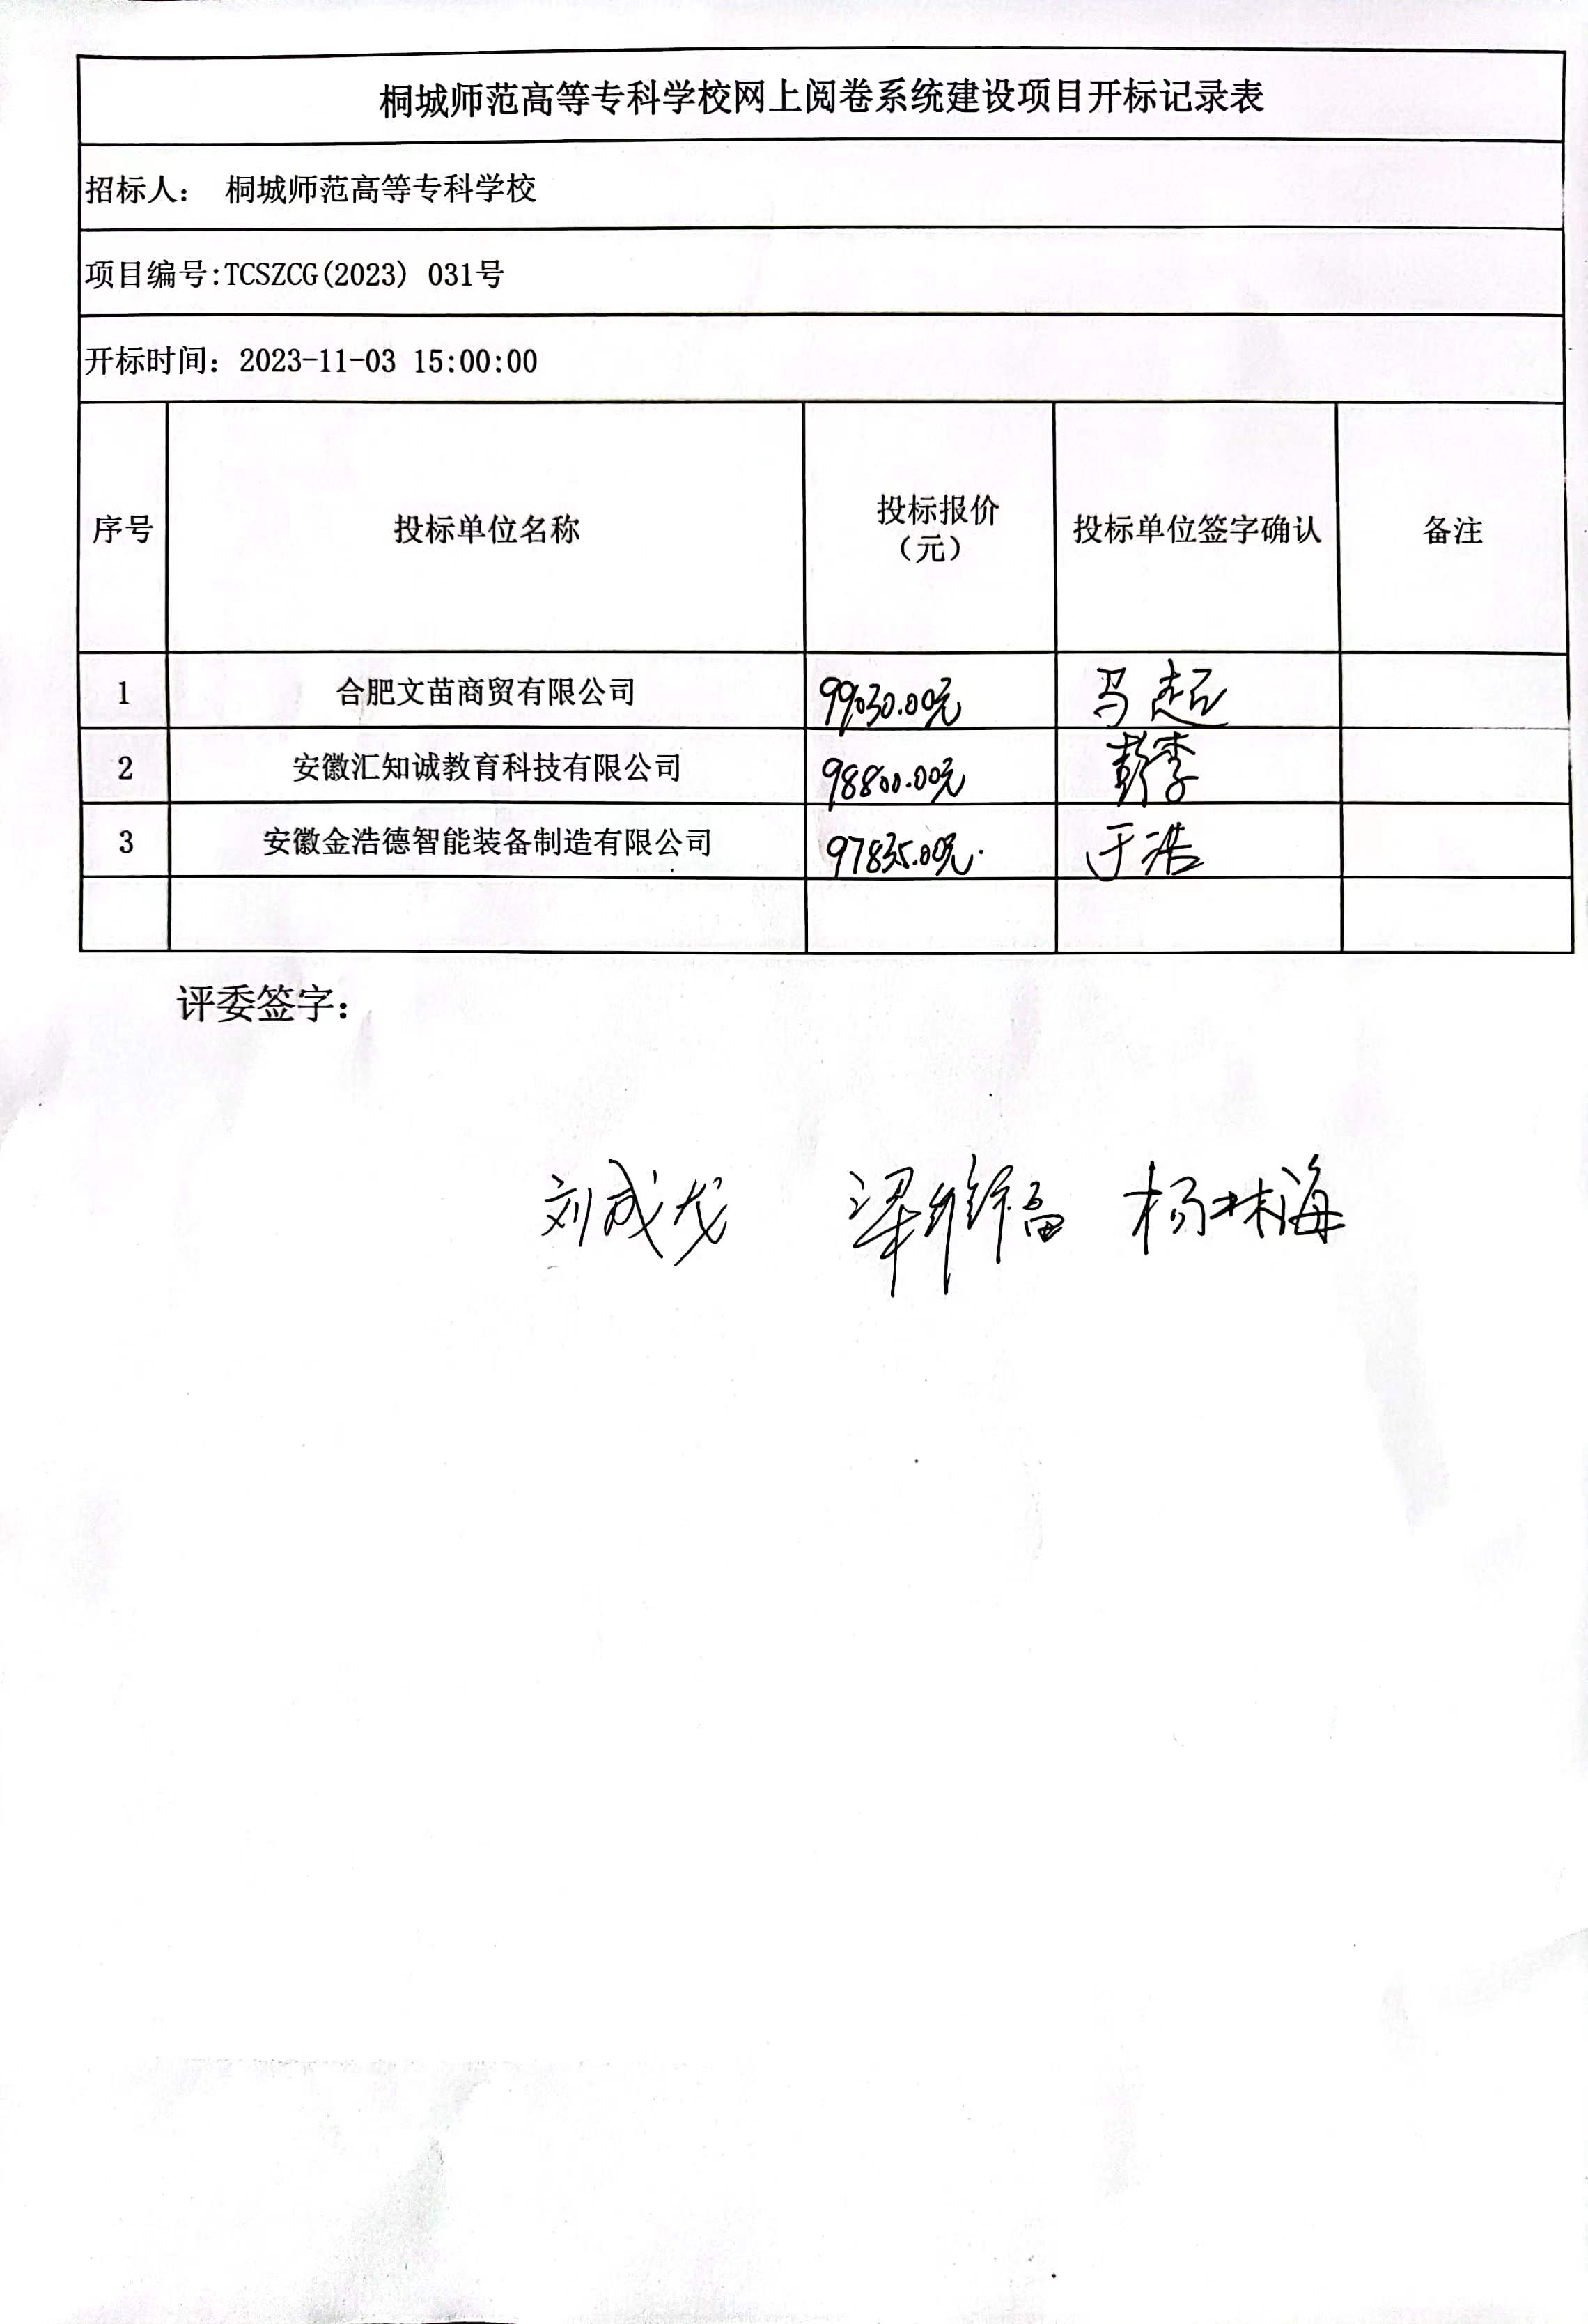 桐城师范高等专科学校网上阅卷系统建设项目开标记录表
招标人： 桐城师范高等专科学校
项目编号:TCSZCG(2023) 031号
开标时间：2023-11-03 15:00:00
序号 投标单位名称 投标报价（元） 投标单位签字确认 备注
1 合肥文苗商贸有限公司 99030.00元 马超
2 安徽汇知诚教育科技有限公司 98800.00元 彭李
3 安徽金浩德智能装备制造有限公司 97835.00元. 于浩
评委签字：
刘成龙 梁维福 杨林海